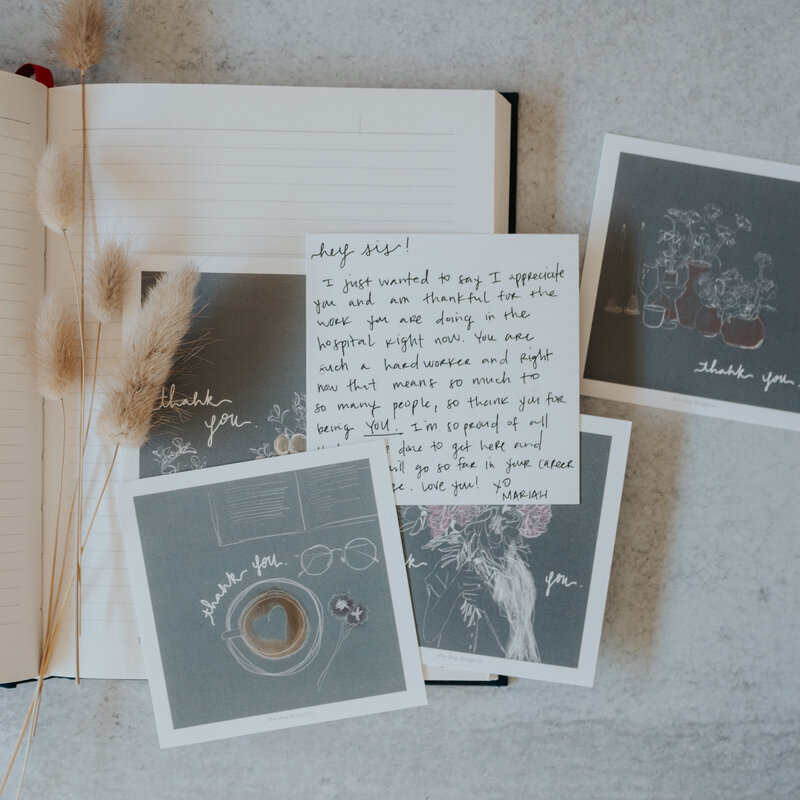 hey sis!
I just wanted to say I appreciate
you and am thankful for the
work you are doing in the
hospital right now. You are
such a hard worker and right
now that means so much to
so many people, so thank you for
being YOU. I'm so proud of all
done to get here and
will go so far in your career
Love you! XO
MARIAH
thank
you.
thank you.
thank you.
you.